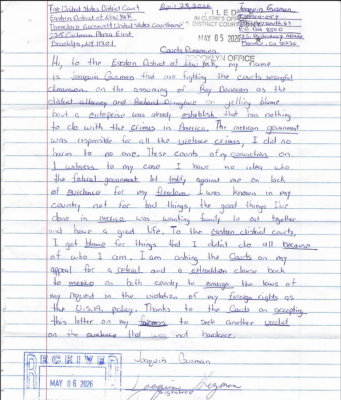 The United States District Court
Eastern District of New York
Theodore Roosevelt United States Courthouse
225 Cadman Plaza East
Brooklyn, NY 11201
April 23, 2026
Joaquin Guzman
P.O. Box 8500
Florence, CO 81226
FILED
IN CLERK'S OFFICE
U.S. DISTRICT COURT
MAY 05 2026
BROOKLYN OFFICE
Courts Dismission
Hi, to the Eastern District of New York, my name
is Joaquin Guzman that are fighting the courts wrongful
on the assuming of Ray Donovan as the
district attorney and Richard Donoghue getting blame
but a enterprise was already establish that has nothing
to do with the crimes in America. The mexican government
was responsible for all the violence crimes, I did no
harm to no one. These counts of my conviction on
I witness to my case I have no idea who
the federal government let testify against me on lack
of evidence for my freedom. I was known in my
country, not for bad things, the good things I've
done in mexico was wanting family to eat together
and have a good life. To the eastern district courts,
I got blame for things that I didn't do all because
of who I am. I am asking the Courts on my
appeal for a retrial and a extradition clause back
to mexico as both county to the laws of
my request in the violation of my foreign rights as
the U.S.A. policy. Thanks to the Courts on accepting
this letter on my to seek another verdict
on the evidence that was not
Joaquin Guzman
Joaquin Guzman
Signature
RECEIVED
MAY 06 2026